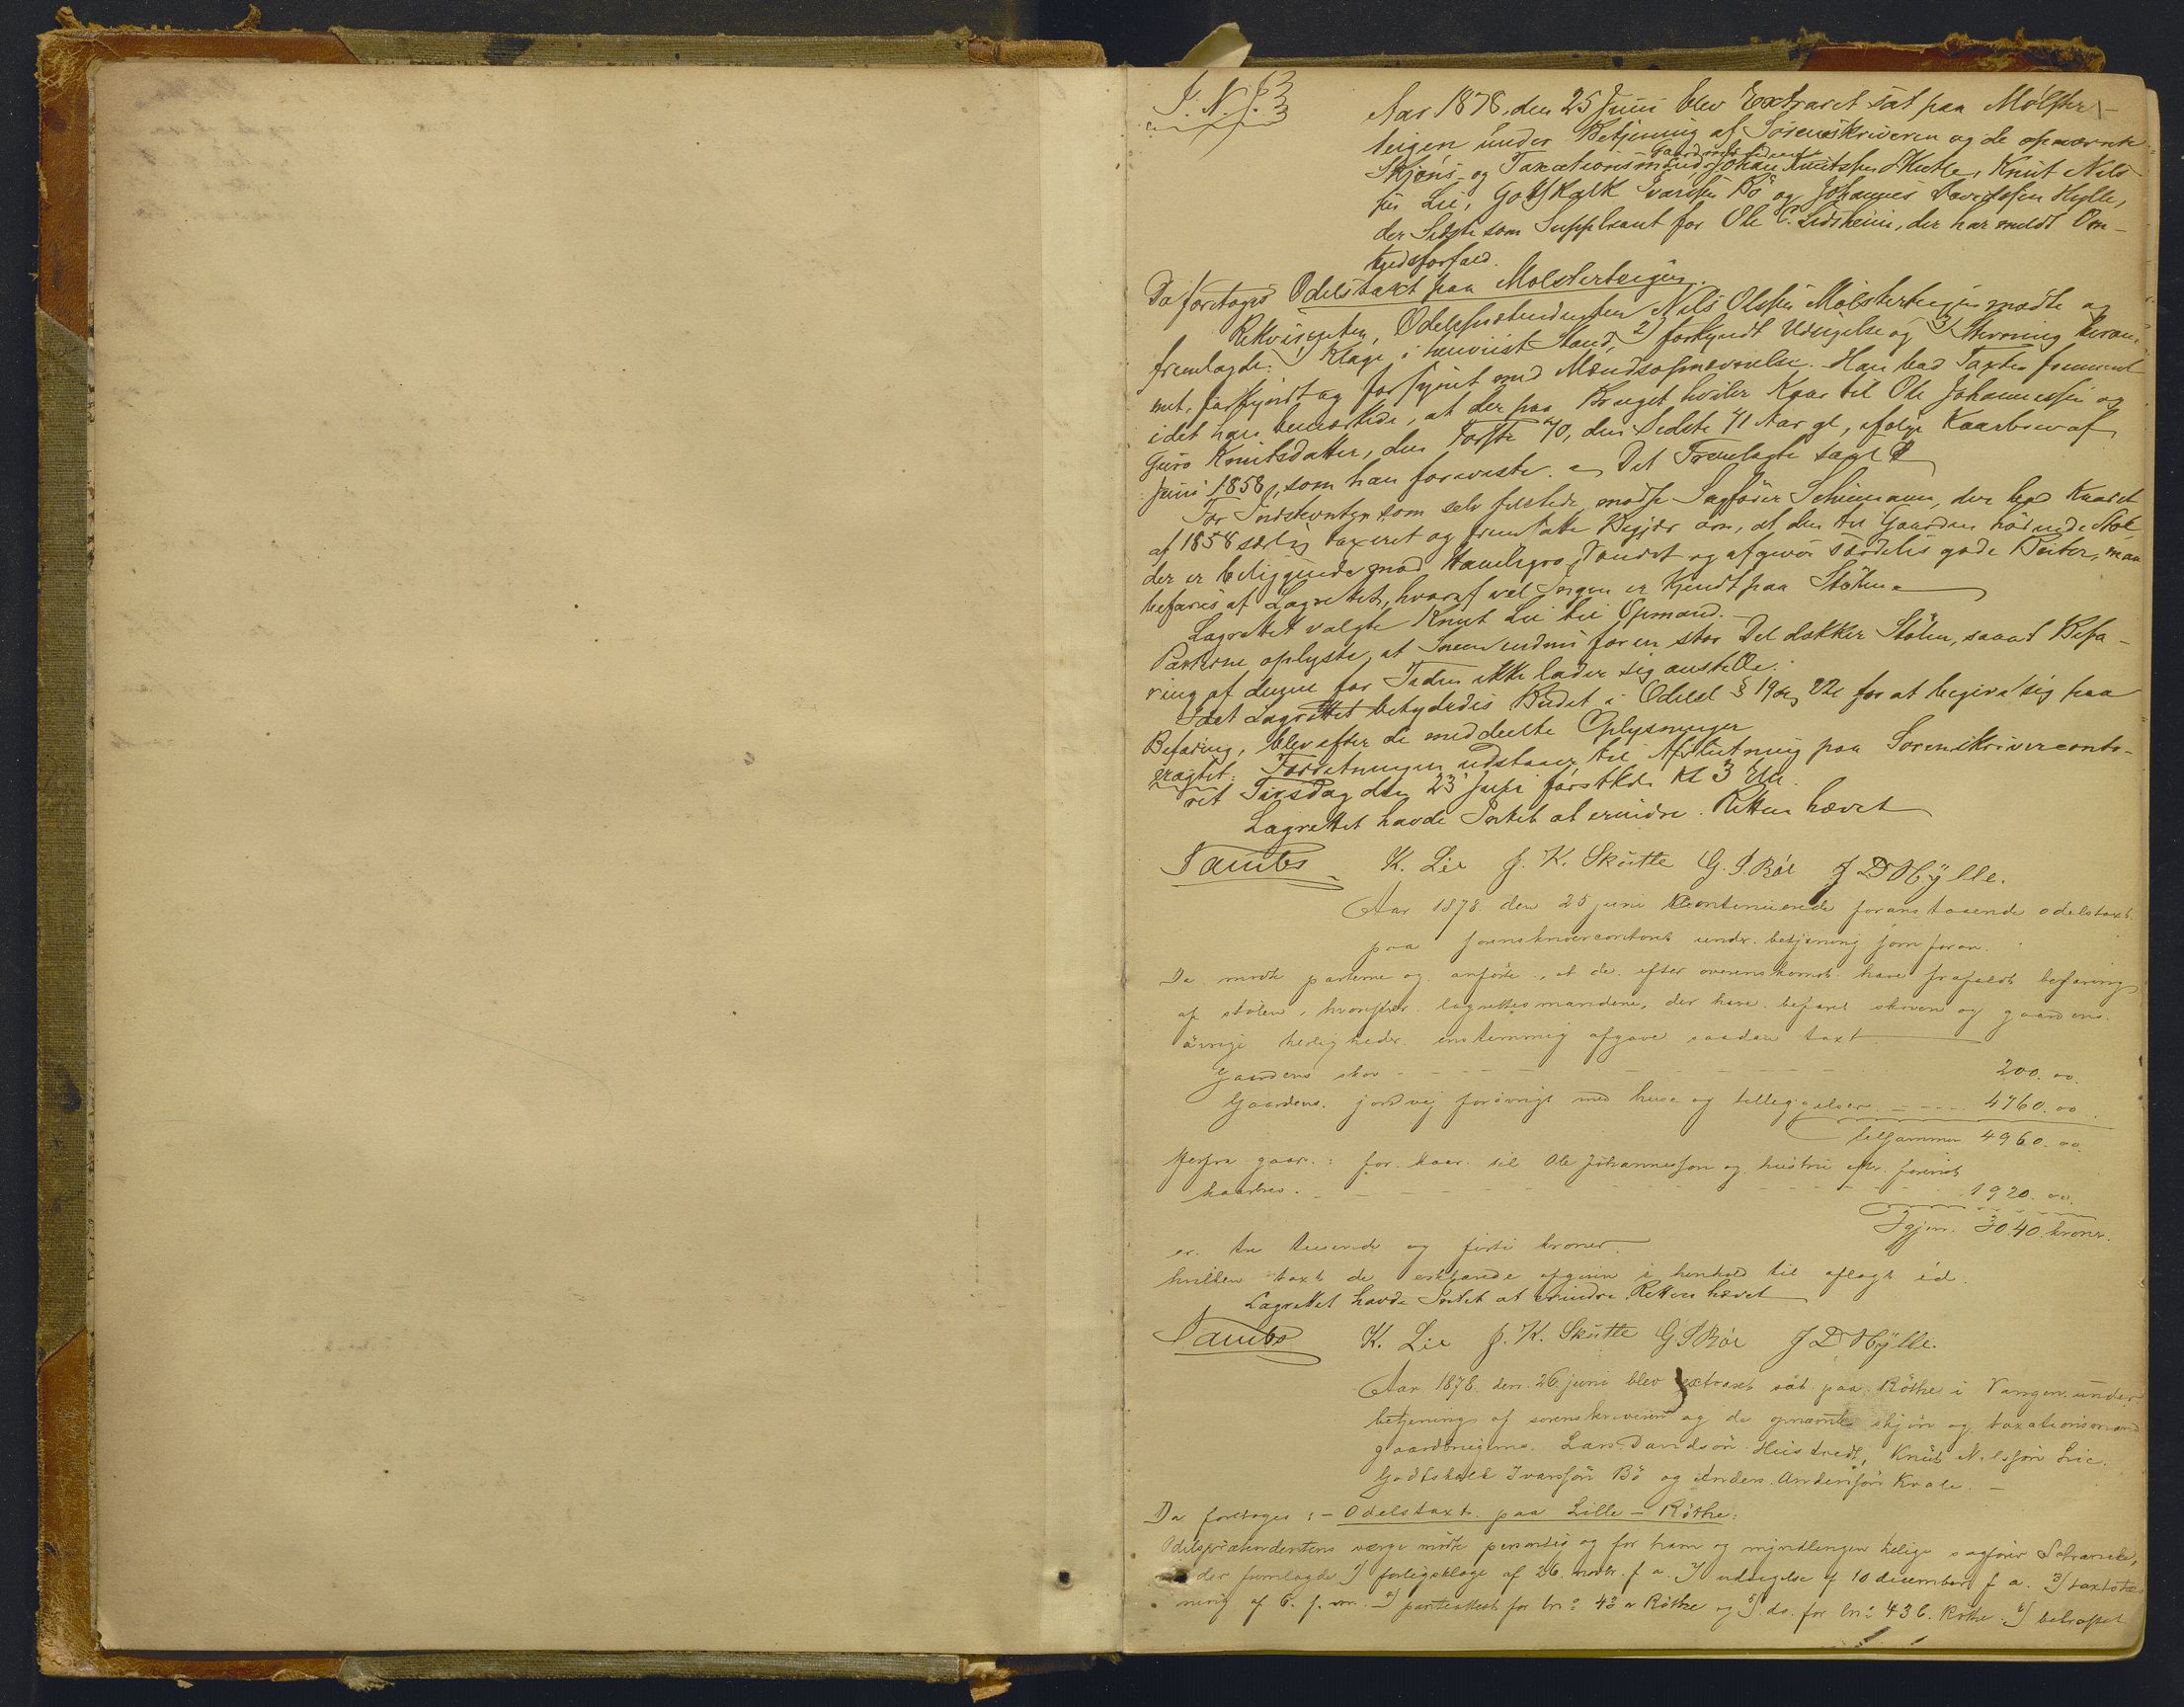 I. N. J.
Aar 1878, den 25 Juni blev Extraret sat paa Mölster-
teigen under Betjening af Sorenskriveren og de opnævnte
Skjöns- og Taxationsmænd, Gaardmændene Johan Knutssen Skutle, Knut Nils-
sen Lie, Gotskalk Ivarssen Bö og Johannes Davidssen Hylle,
der Sidste som Suppleant for Ole C. Lidsheim, der har meldt Om-
bydsforfald.
Da foretoges Odelstaxt paa Molsterteigen.
Rekvirenten, Odelsprætendenten Nils Olssen Mölsterteigen mødte og
fremlagde: 1) Klage i henviist Stand, 2) forkyndt Udsigelse og 3) Stevning beram-
met, forkyndt og forsynet med Mændsopnævnelse. Han bad Taxten fremmet
idet han bemærkede, at der paa Bruget hviler Kaar til Ole Johannessen og
Guro Knutsdatter, den Første 70, den Sidste 71 Aar gl, ifølge Kaarbrev af
Juni 1858, som han foreviste. Det Fremlagte
For Indstevnten som selv tilstede mødte Sagfører Schiemann, der bad Kaaret
af 1858 særlig taxeret og fremsatte Begjær om, at den til Gaarden hörende Støl
der er beliggende mod Hamlegrø Vandet og afgiver særdeles gode Beiter, maa
befares af Lagrettet, hvoraf vel Ingen er kjendt paa Stölen
Lagrettet valgte Knut Lie til Opmand.
Parterne oplyste, at Sneen endnu for en stor Del dækker Stölen, saaat Befa-
ring af denne for Tiden ikke lader sig anstille.
Idet Lagrettet betydedes Budet i Odelsl § 19 og 22 for at begive sig paa
Befaring, blev efter de meddeelte Oplysninger
eragtet: Forretningen udstaaer til Afslutning paa Sorenskriverconto-
ret Tirsdag den 23 Juli førstk. Kl 3 Em.
Lagrettet havde Intet at erindre. Retten hævet
Tambs K. Lie J. K. Skutle G. I. Böe J D Hÿlle.
Aar 1878 den 25 juni kontinuerede foranstaaende odelstaxt
paa sorenskrivercontoret under betjening som foran.
Da mødte parterne og anførte, at de efter overenskomst have frafaldt befaring
af stölen, hvorefter lagrettesmændene, der have befaret skoven og gaardens
övrige herligheder enstemmig afgave saadan taxt
Gaardens skov 200.00.
Gaardens jordvej forövrigt med huse og tilleggelser 4760.00
tilsammen 4960.00.
Herfra gaar: for kaar til Ole Johannesson og hustru efter foreviist
kaarbrev. 1920.00.
Igjen 3040 kroner.
er tre tusende og firti kroner.
hvilken taxt de erklærede afgiven i henhold til aflagt ed.
Lagrettet havde Intet at erindre. Retten hævet
Tambs K. Lie J. K. Skutle G I Böe J D Hÿlle.
Aar 1878 den 26 juni blev extraret sat paa Röthe i Vangen under
betjening af sorenskriveren og de opnævnte skjøn og taxationsmænd
gaardbrugerne Lars Davidsön Hustredt, Knut Nilssön Lie.
Godtskalk Ivarssön Bö og Anders Anderssön Kvale. —
Da foretoges: — Odelstaxt paa Lille-Röthe:
Odelsprætendentens værge mötte personlig og for ham og myndlingen tillige sagförer
der fremlagde 1) forligsklage af 26. novbr. f. a. 2) udsigelse af 10 december f a. 3) taxtstev-
ning af 6. f. m. 4) panteattest for brn: 43 a Röthe og 5) do. for brn: 43 b. Röthe 6)